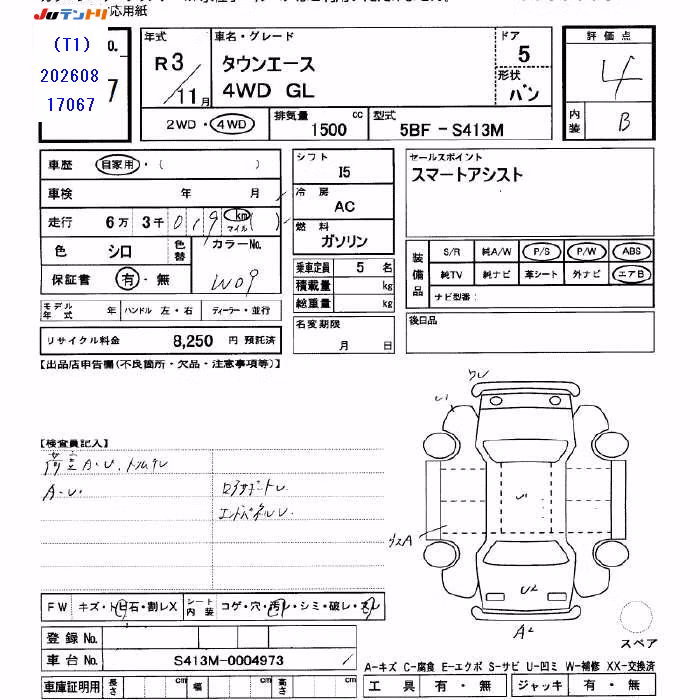 JUテントリ
応用紙
(T1)
202608
17067
No.
7
年式
R3/11月
車名・グレード
タウンエース
4WD GL
ドア
5
形状
バン
評価点
4
内装
B
2WD・4WD
排気量
1500 cc
型式
5BF - S413M
車歴 自家用・( )
車検 年 月
走行 6万 3千 019 km マイル ( )
色 シロ 色替 カラーNo. W09
保証書 有・無
モデル年式 年 ハンドル 左・右 ディーラー・並行
リサイクル料金 8,250 円 預託済
シフト
I5
冷房
AC
燃料
ガソリン
乗車定員 5 名
積載量 kg
総重量 kg
名変期限
月 日
セールスポイント
スマートアシスト
装備品
S/R 純A/W P/S P/W ABS
純TV 純ナビ 革シート 外ナビ エアB
ナビ型番:
後日品
【出品店申告欄(不良箇所・欠品・注意事項等)】
【検査員記入】
A・U.
A・U.
エンドパネルU.
FW キズ・トビ石・割レX シート内装 コゲ・穴・汚レ・シミ・破レ・スレ
登録No.
車台No. S413M-0004973
車庫証明用 長さ cm 幅 cm 高さ cm
U1
U1
U2
A2
スペア
A-キズ C-腐食 E-エクボ S-サビ U-凹ミ W-補修 XX-交換済
工具 有・無 ジャッキ 有・無